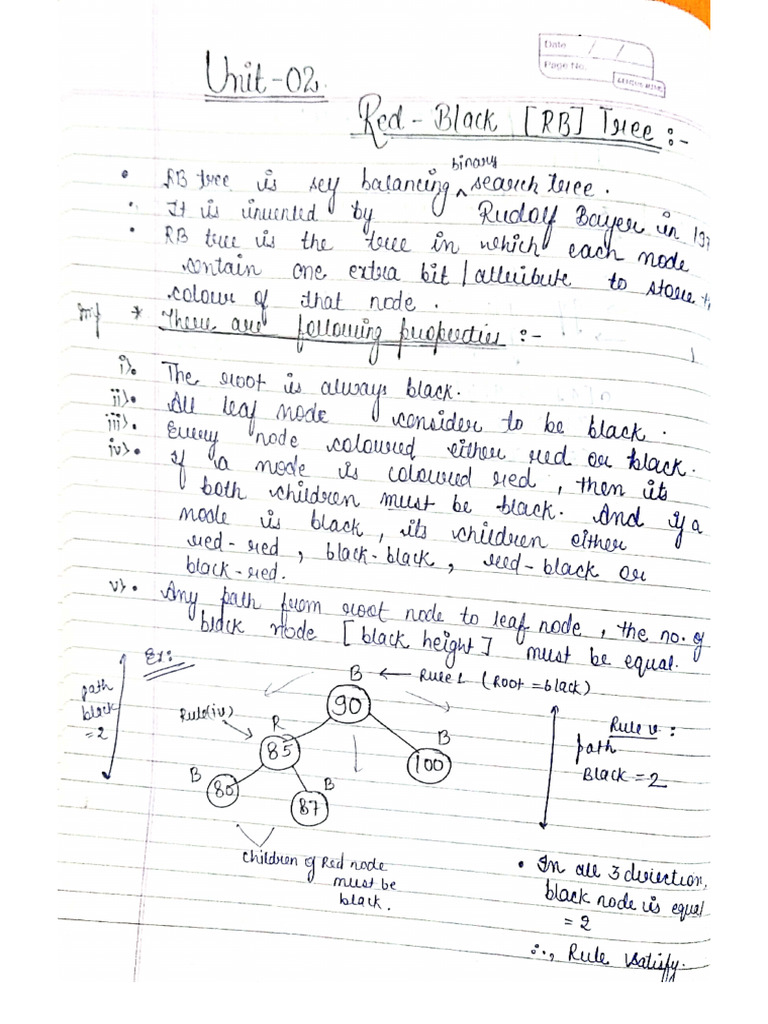 Date / /
Page No.
Unit-02.
Red-Black [RB] Tree :-
binary
• RB tree is self balancing ^ search tree.
• It is invented by Rudolf Bayer in 197
• RB tree is the tree in which each node
contain one extra bit / attribute to store
colour of that node.
imp * There are following properties :-
i). The root is always black.
ii). All leaf node consider to be black.
iii). Every node coloured either red or black.
iv). If a node is coloured red, then its
both children must be black. And if a
node is black, its children either
red-red, black-black, red-black or
black-red.
v). Any path from root node to leaf node, the no. of
black node [black height] must be equal.
Ex:
B ← Rule 1 (Root = black)
90
path
black
= 2
Rule(iv)
R
85
B
100
B
80
B
87
Rule v :
path
Black = 2
children of Red node
must be
black.
• In all 3 direction,
black node is equal
= 2
∴, Rule satisfy.